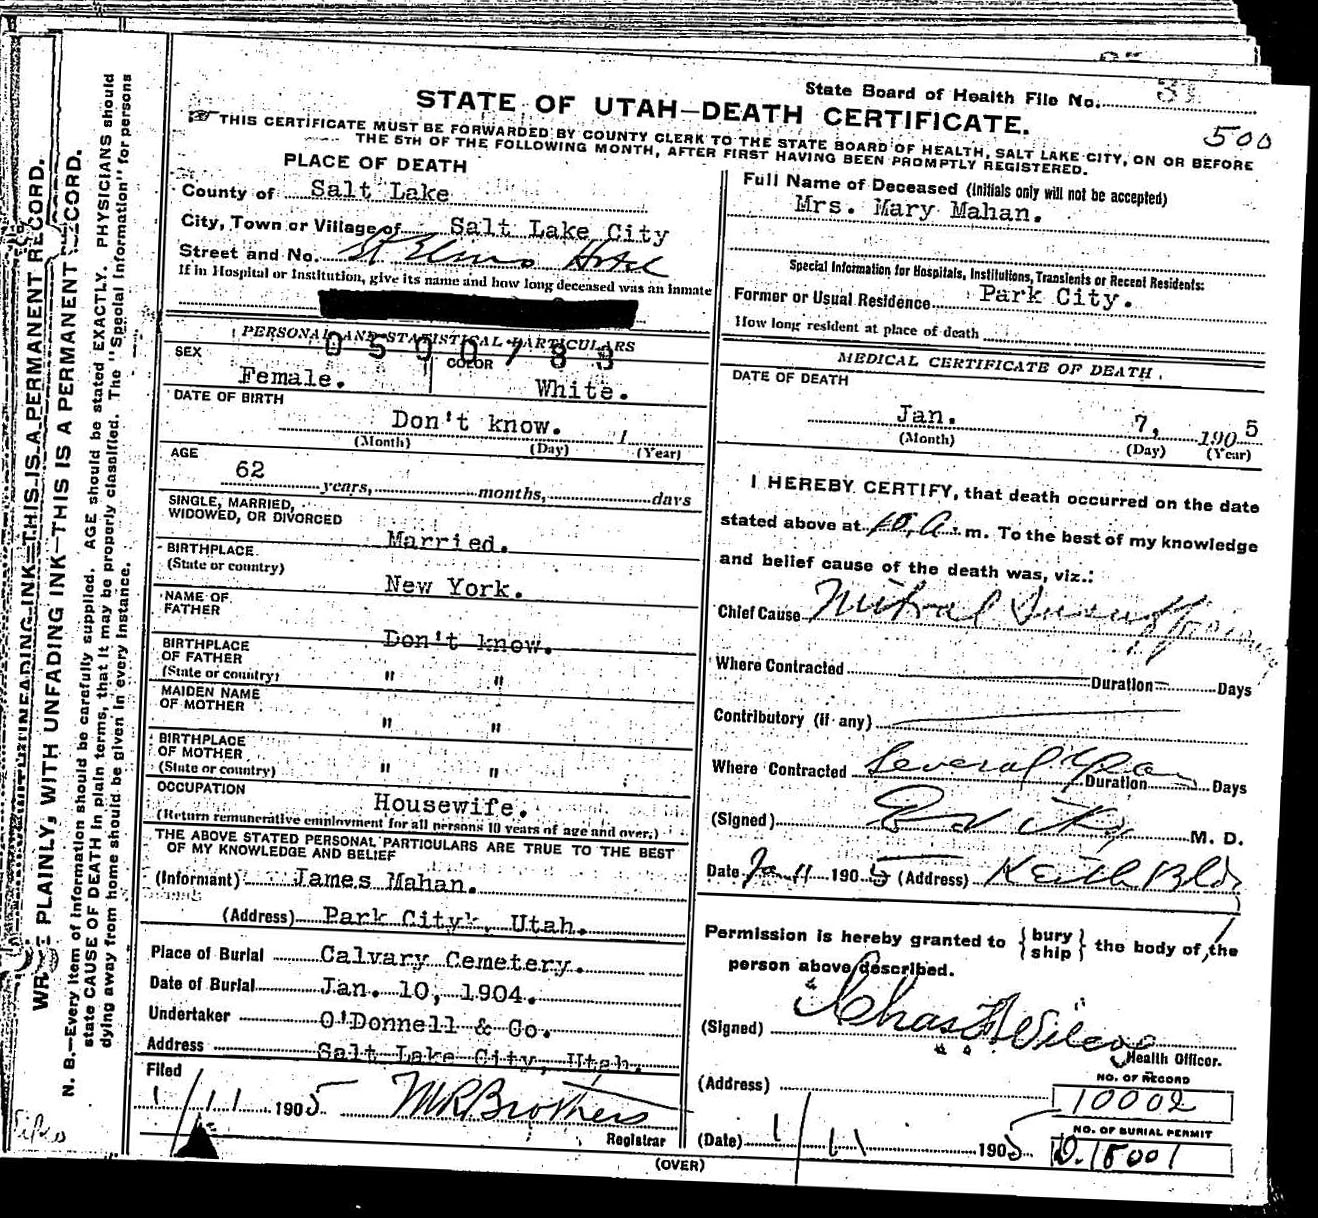 State Board of Health File No.
STATE OF UTAH—DEATH CERTIFICATE.
500
THIS CERTIFICATE MUST BE FORWARDED BY COUNTY CLERK TO THE STATE BOARD OF HEALTH, SALT LAKE CITY, ON OR BEFORE
THE 5TH OF THE FOLLOWING MONTH, AFTER FIRST HAVING BEEN PROMPTLY REGISTERED.
PLACE OF DEATH
County of Salt Lake
City, Town or Village of Salt Lake City
Street and No. St Elmo Hotel
If in Hospital or Institution, give its name and how long deceased was an inmate
PERSONAL AND STATISTICAL PARTICULARS
SEX COLOR
Female. White.
DATE OF BIRTH
Don't know. 1
(Month) (Day) (Year)
AGE
62 years, months, days
SINGLE, MARRIED,
WIDOWED, OR DIVORCED
Married.
BIRTHPLACE
(State or country)
New York.
NAME OF
FATHER
Don't know.
BIRTHPLACE
OF FATHER
(State or country) " "
MAIDEN NAME
OF MOTHER
" "
BIRTHPLACE
OF MOTHER
(State or country) " "
OCCUPATION
Housewife.
(Return remunerative employment for all persons 10 years of age and over.)
THE ABOVE STATED PERSONAL PARTICULARS ARE TRUE TO THE BEST
OF MY KNOWLEDGE AND BELIEF
(Informant) James Mahan.
(Address) Park City, Utah.
Place of Burial Calvary Cemetery.
Date of Burial Jan. 10, 1904.
Undertaker O'Donnell & Co.
Address Salt Lake City, Utah.
Filed
1/11 1905 M R Brothers
Registrar
Full Name of Deceased (Initials only will not be accepted)
Mrs. Mary Mahan.
Special Information for Hospitals, Institutions, Transients or Recent Residents:
Former or Usual Residence Park City.
How long resident at place of death
MEDICAL CERTIFICATE OF DEATH
DATE OF DEATH
Jan. 7, 1905
(Month) (Day) (Year)
I HEREBY CERTIFY, that death occurred on the date
stated above at 10, A. m. To the best of my knowledge
and belief cause of the death was, viz.:
Chief Cause Mitral Insufficiency
Where Contracted Duration Days
Contributory (if any)
Where Contracted Several Years Duration Days
(Signed) M. D.
Date Jan 11 1905 (Address) Keith Bld
Permission is hereby granted to { bury ship } the body of the
person above described.
(Signed) Chas F Wilcox
Health Officer.
(Address)
NO. OF RECORD
10002
(Date) 1/11 1905
NO. OF BURIAL PERMIT
D. 15001
(OVER)
WRITE PLAINLY, WITH UNFADING INK—THIS IS A PERMANENT RECORD.
N. B.—Every item of information should be carefully supplied. AGE should be stated EXACTLY. PHYSICIANS should
state CAUSE OF DEATH in plain terms, that it may be properly classified. The "Special Information" for persons
dying away from home should be given in every instance.